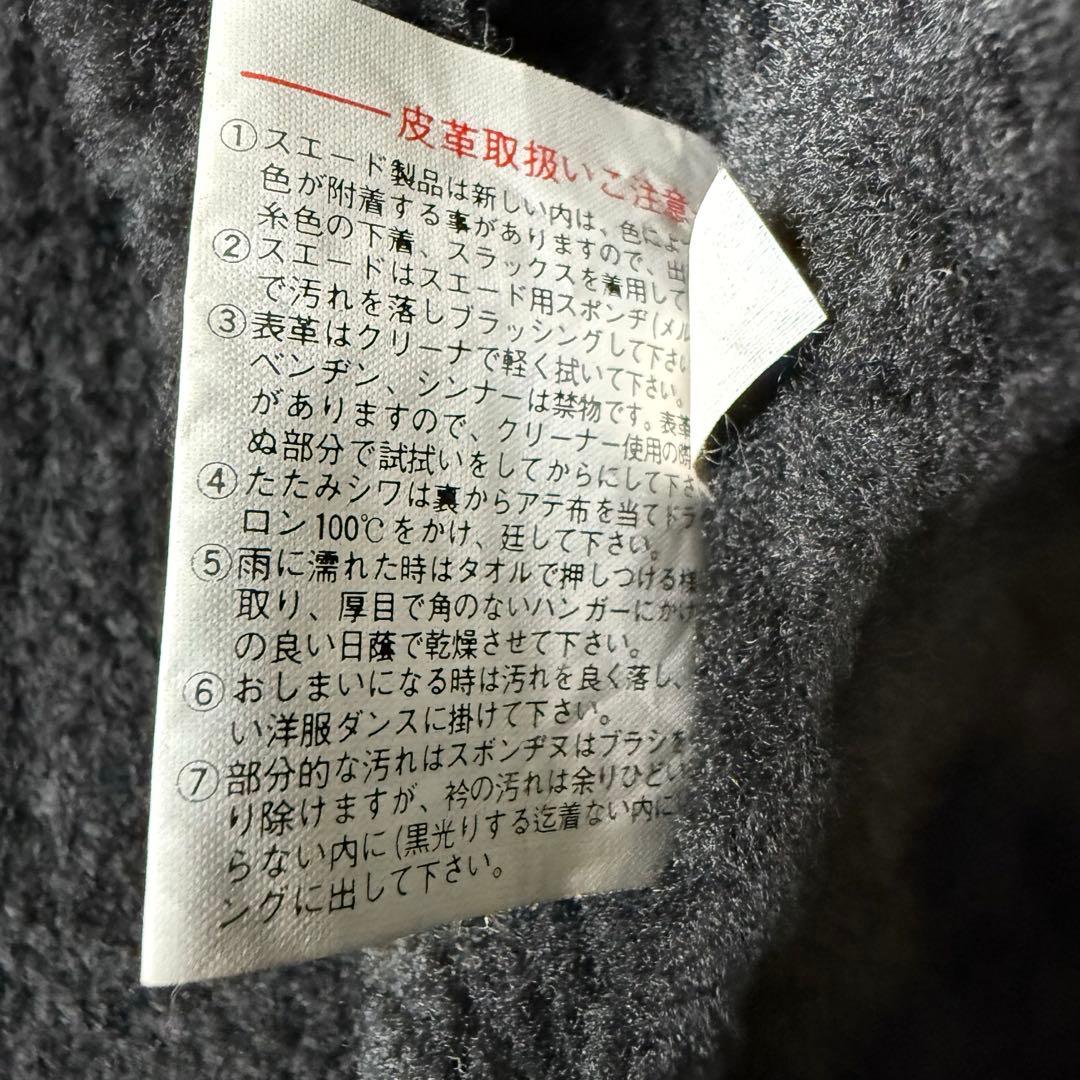 皮革取扱いご注意
①スエード製品は新しい内は、色によ
色が附着する事がありますので、出
糸色の下着、スラックスを着用して
②スエードはスエード用スポンヂ(メル
で汚れを落しブラッシングして下さい
③表革はクリーナで軽く拭いて下さい。
ベンヂン、シンナーは禁物です。表革
がありますので、クリーナー使用の際
ぬ部分で試拭いをしてからにして下さ
④たたみシワは裏からアテ布を当てドラ
ロン100℃をかけ、廷して下さい。
⑤雨に濡れた時はタオルで押しつける様
取り、厚目で角のないハンガーにかけ
の良い日蔭で乾燥させて下さい。
⑥おしまいになる時は汚れを良く落し、
い洋服ダンスに掛けて下さい。
⑦部分的な汚れはスポンヂヌはブラシを
り除けますが、衿の汚れは余りひどい
らない内に(黒光りする迄着ない内に
ングに出して下さい。